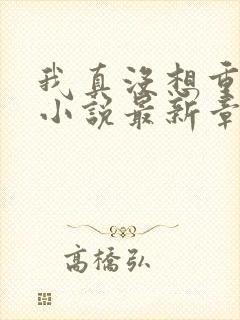 我真没想重
小说最新章
高橋弘